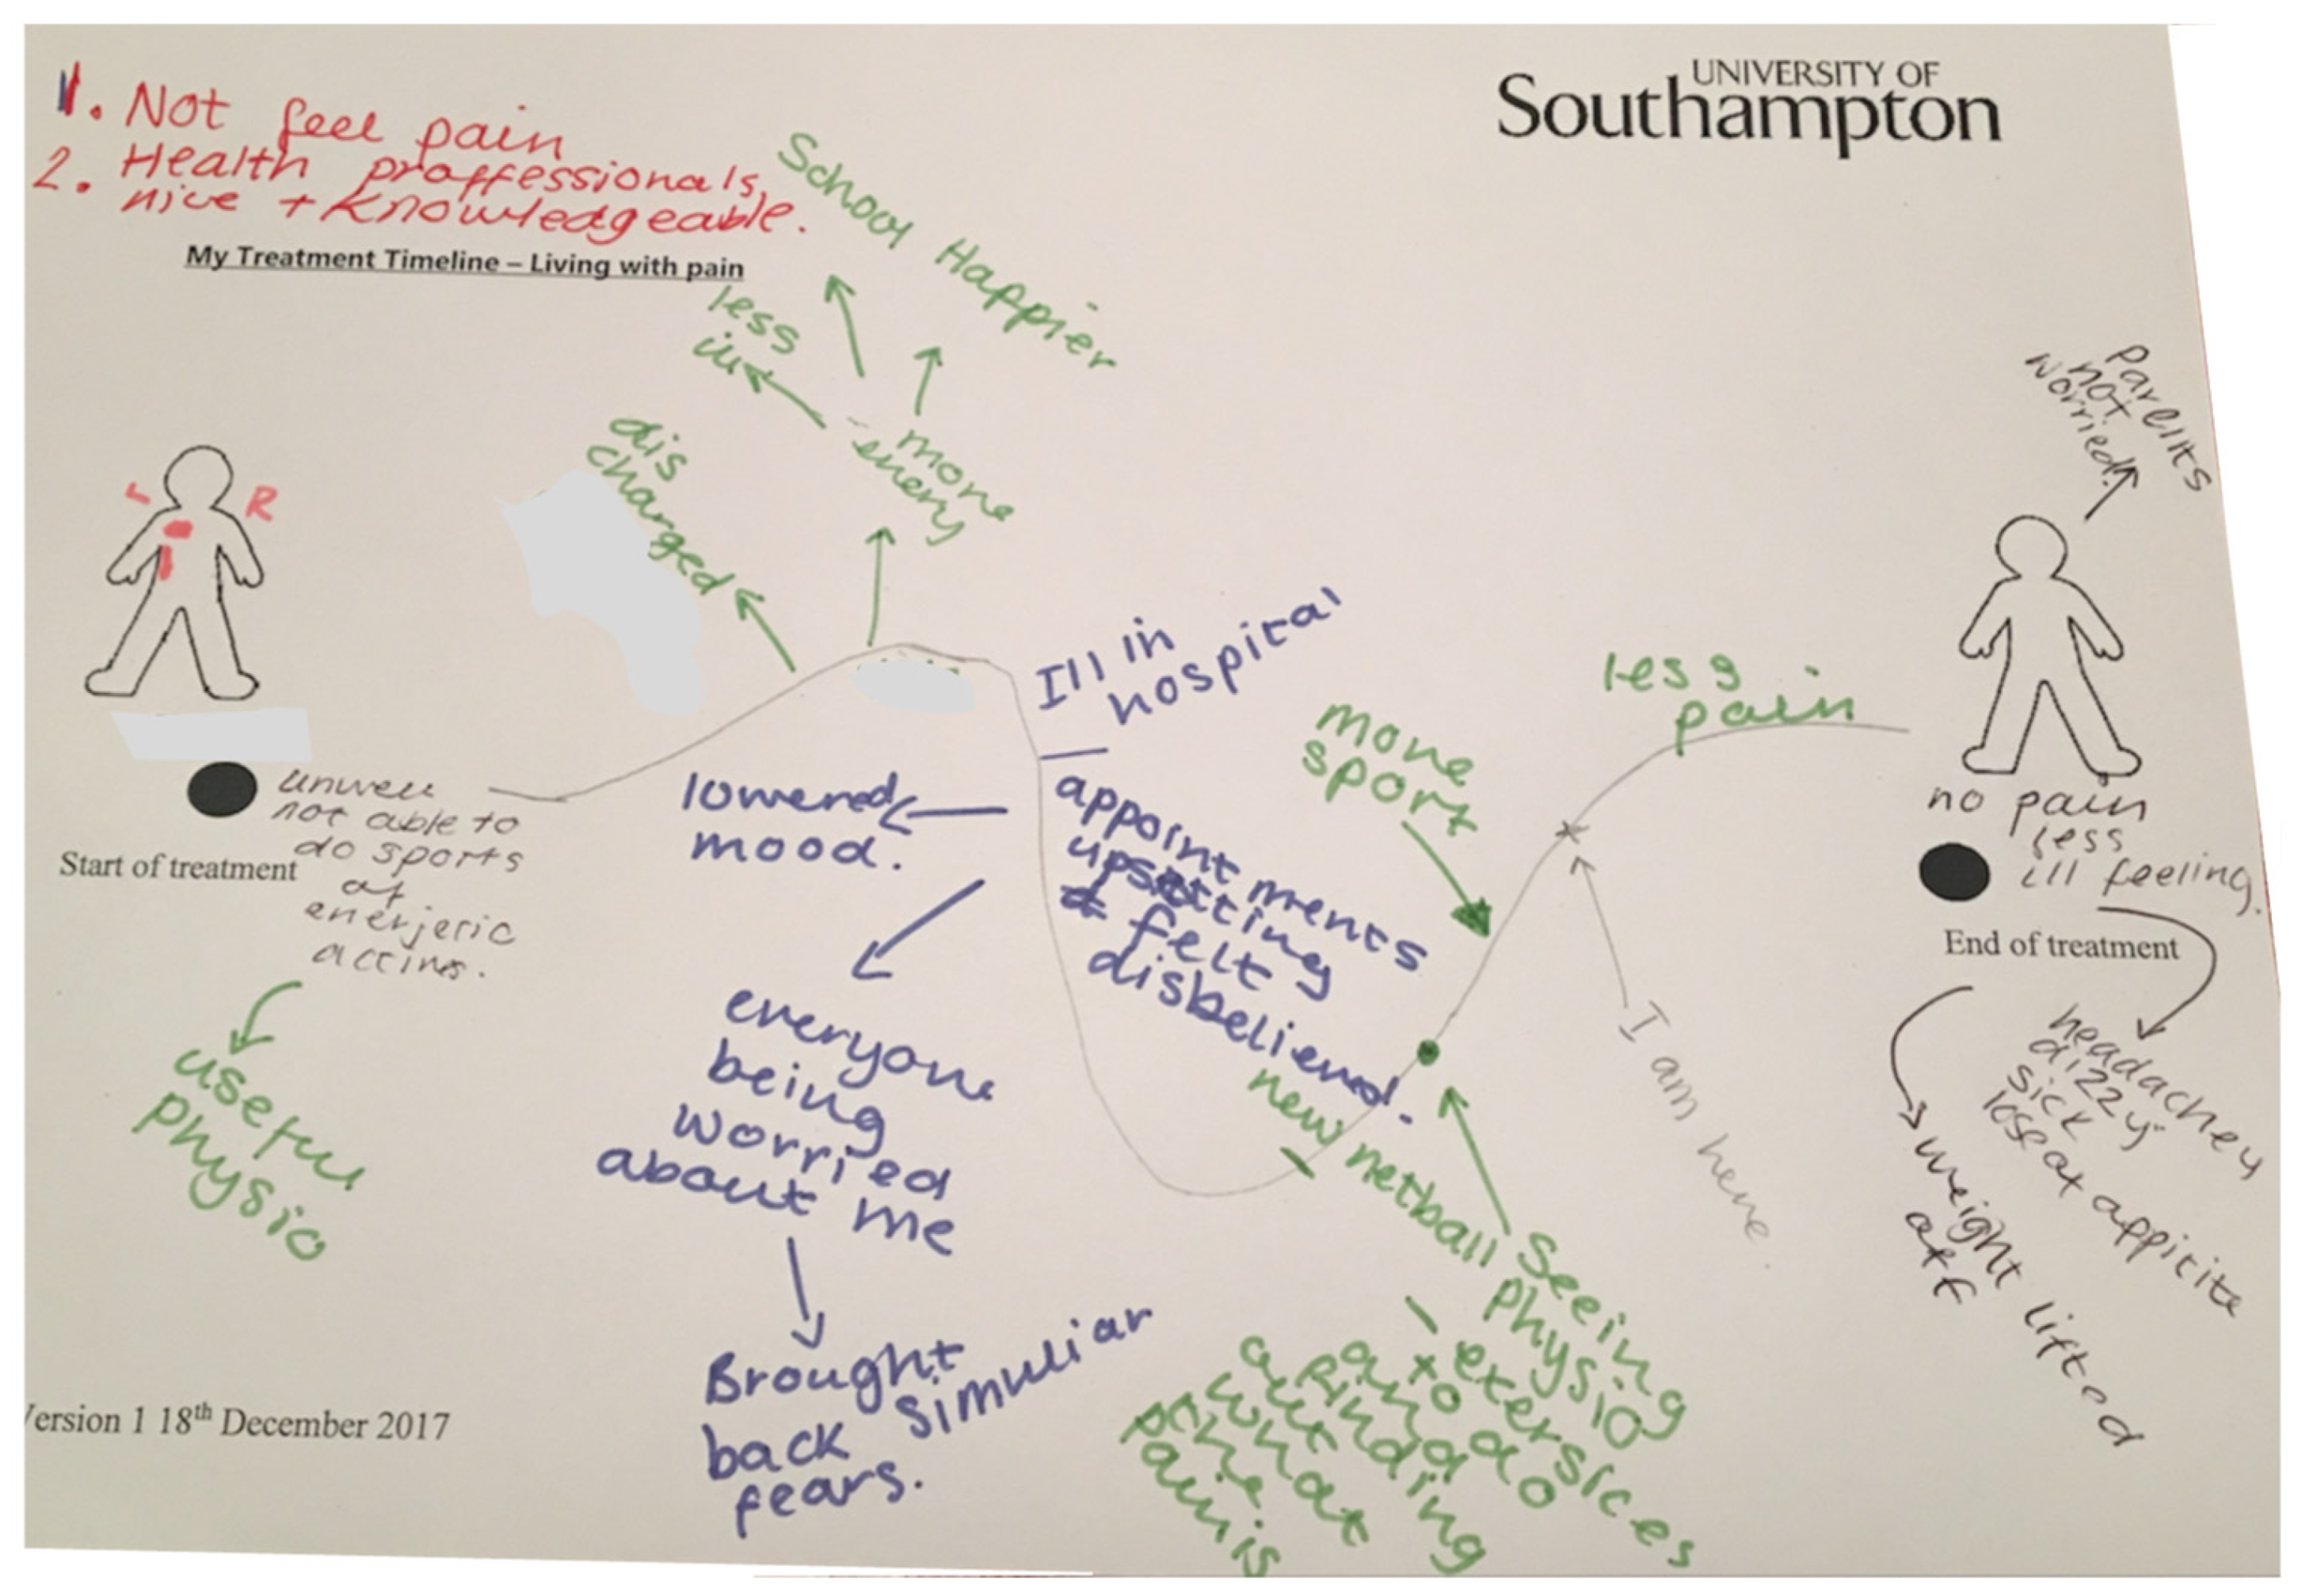 1. Not feel pain
2. Health proffessionals,
nice + knowledgeable.
UNIVERSITY OF
Southampton
My Treatment Timeline – Living with pain
School Happier
less
ill
more
enery
dis
charged
L
R
unwell
not able to
do sports
enerjeric
Start of treatment
useful
physio
Ill in
hospital
appointments
upsetting
felt
disbelieved.
lowered
mood.
everyone
being
worried
about me
Brought
back simuliar
fears.
more
sport
less
pain
I am here
new netball
Seeing
physio
– extersices
to do
and
finding
out
what
the
pain is
parents
not
worried
no pain
less
ill feeling.
End of treatment
headachey
dizzy
sick
appitite
weight lifted
off
Version 1 18th December 2017